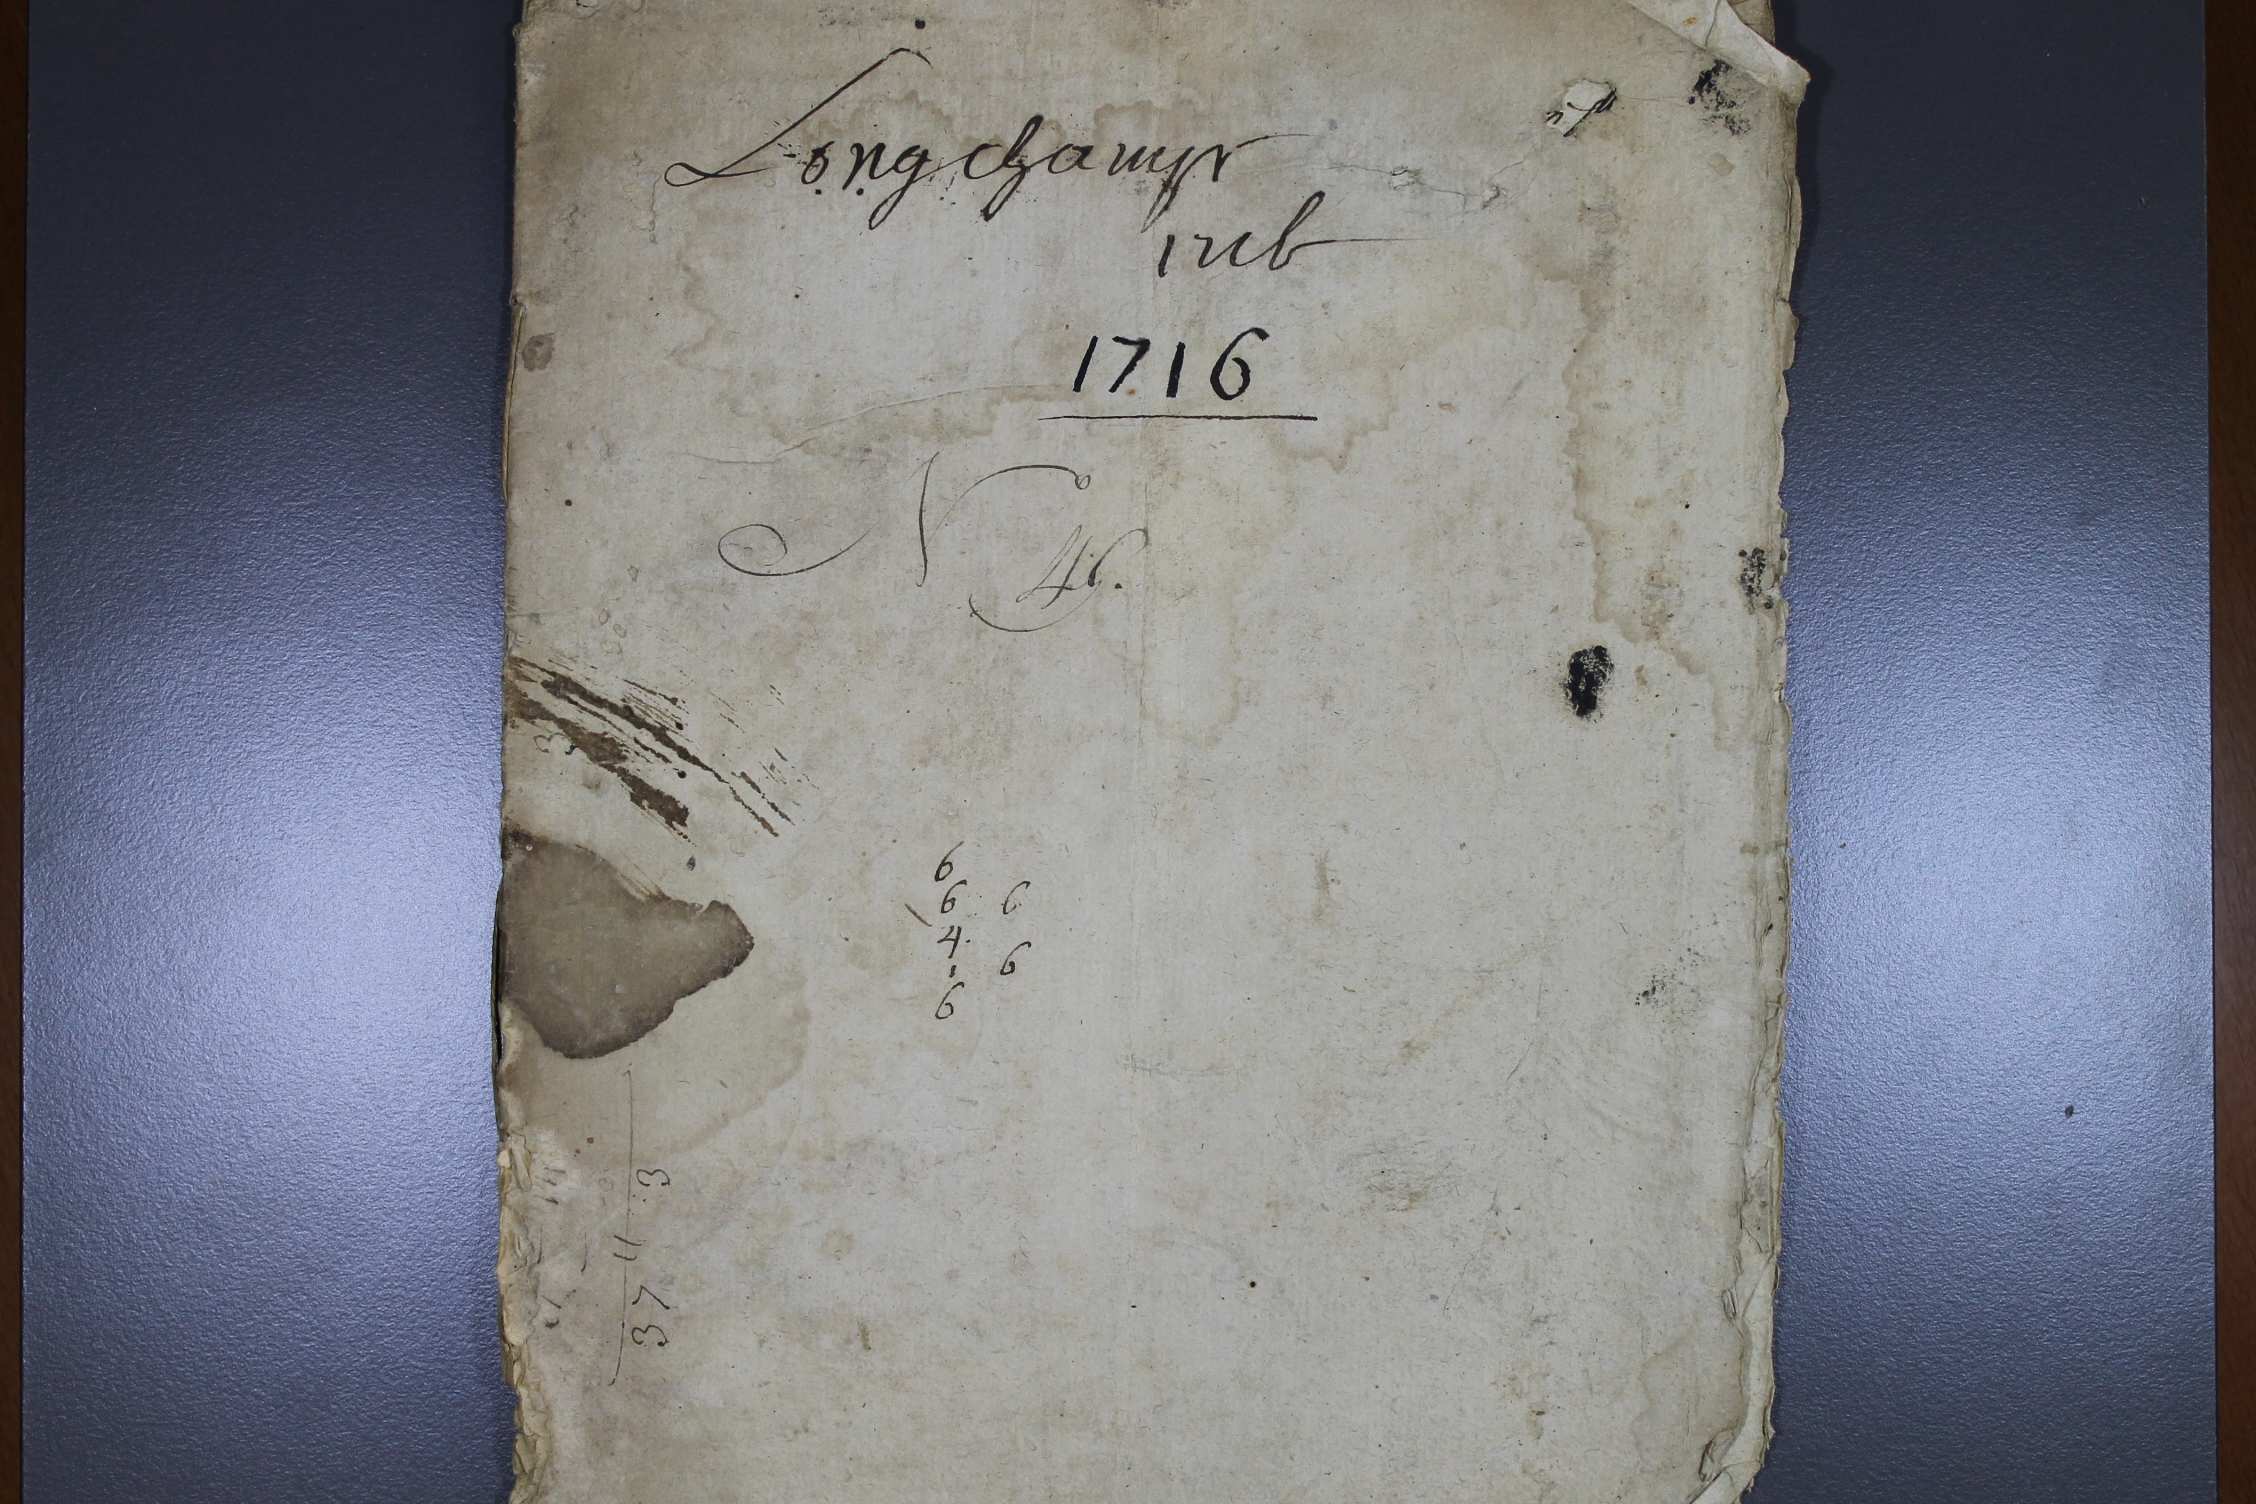 Longchamps
1716
1716
N 46.
6
6 6
4.
1 6
6
37 11 3